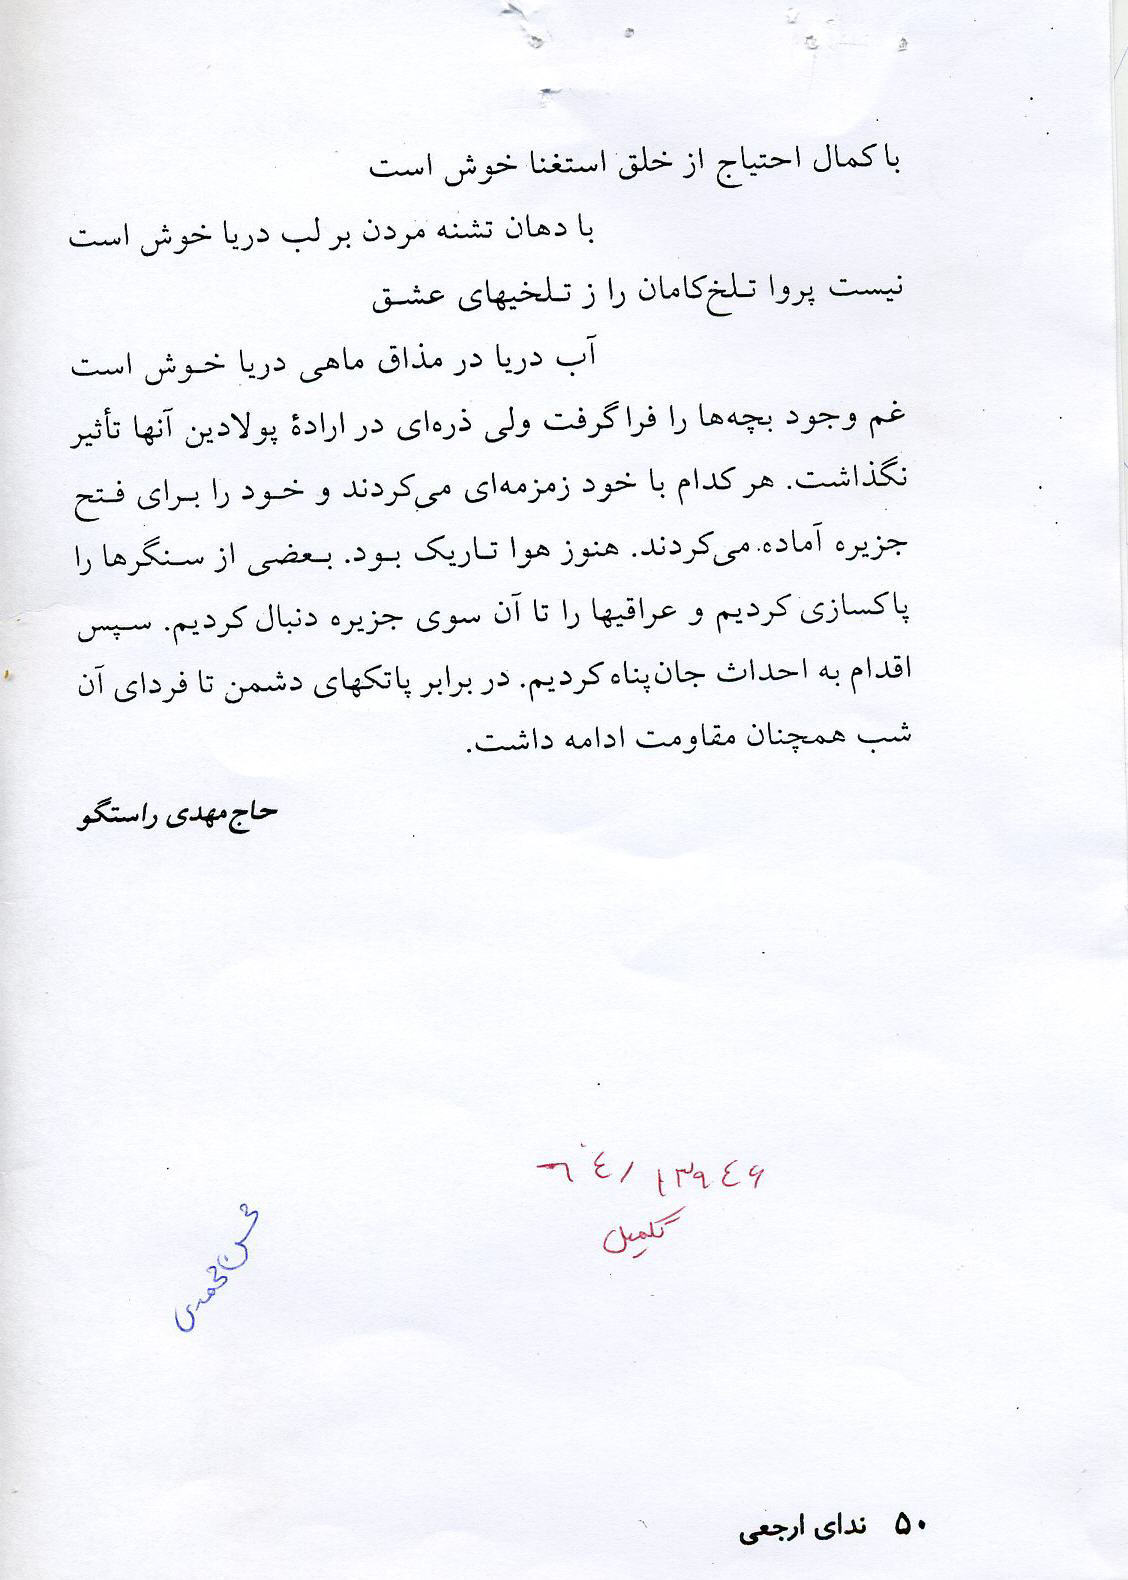 با کمال احتیاج از خلق استغنا خوش است
با دهان تشنه مردن بر لب دریا خوش است
نیست پروا تلخ‌کامان را ز تلخیهای عشق
آب دریا در مذاق ماهی دریا خوش است
غم وجود بچه‌ها را فرا گرفت ولی ذره‌ای در ارادهٔ پولادین آنها تأثیر
نگذاشت. هر کدام با خود زمزمه‌ای می‌کردند و خود را برای فتح
جزیره آماده می‌کردند. هنوز هوا تاریک بود. بعضی از سنگرها را
پاکسازی کردیم و عراقیها را تا آن سوی جزیره دنبال کردیم. سپس
اقدام به احداث جان‌پناه کردیم. در برابر پاتکهای دشمن تا فردای آن
شب همچنان مقاومت ادامه داشت.
حاج مهدی راستگو
تکمیل
۵۰ ندای ارجعی